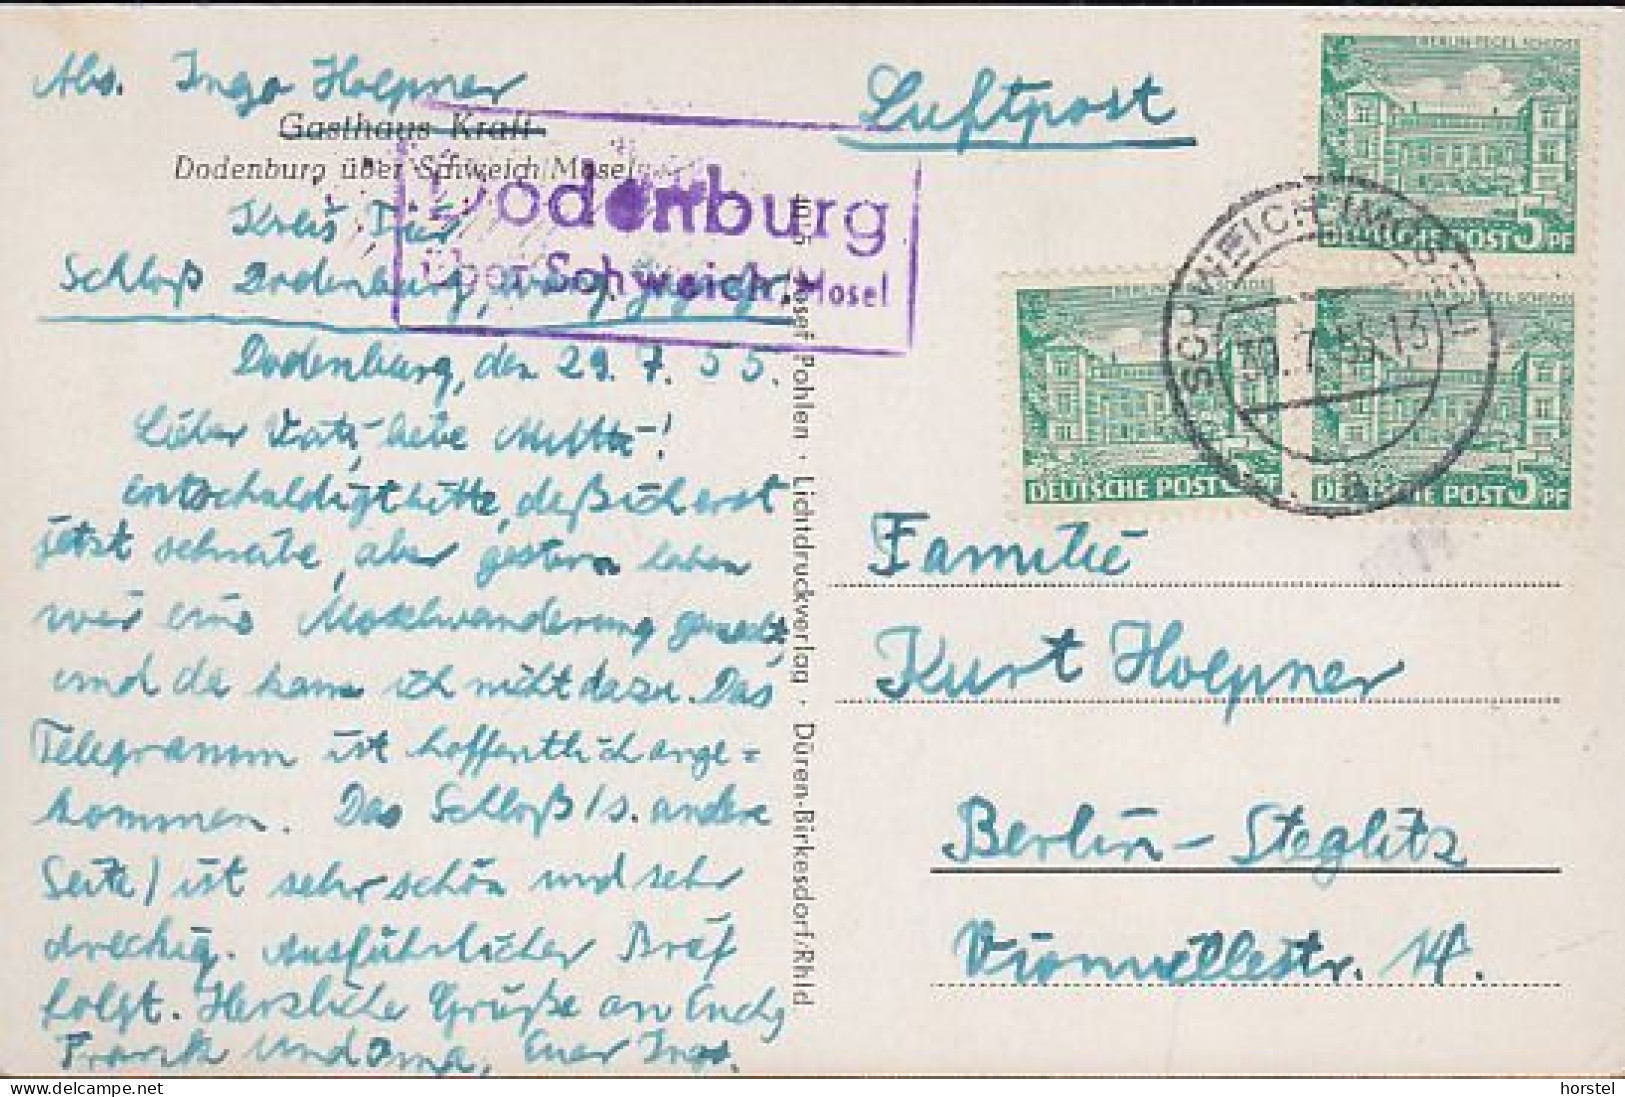 Abs. Ingo Hoepner
Gasthaus Kraft
Dodenburg über Schweich/Mosel
Kreis
Schloß Dodenburg,
Dodenburg, den 29. 7. 55.
Lieber Vati, liebe Mutti!
entschuldigt bitte, daß ich erst
jetzt schreibe, aber gestern haben
wir eine Moselwanderung gemacht,
und da kam ich nicht dazu. Das
Telegramm ist hoffentlich ange=
kommen. Das Schloß (s. andere
Seite) ist sehr schön und sehr
dreckig. Ausführlicher Brief
folgt. Herzliche Grüße an Euch,
Frank und Oma, Euer Ingo.
Dodenburg
über Schweich/Mosel
Josef Pohlen · Lichtdruckverlag · Düren-Birkesdorf/Rhld
Luftpost
BERLIN-TEGEL, SCHLOSS
DEUTSCHE POST 5 PF
BERLIN-TEGEL, SCHLOSS
DEUTSCHE POST 5 PF
BERLIN-TEGEL, SCHLOSS
DEUTSCHE POST 5 PF
SCHWEICH (MOSEL)
30.7.55.13
a
Familie
Kurt Hoepner
Berlin-Steglitz
Vionvillestr. 14.
delcampe.net
horstel